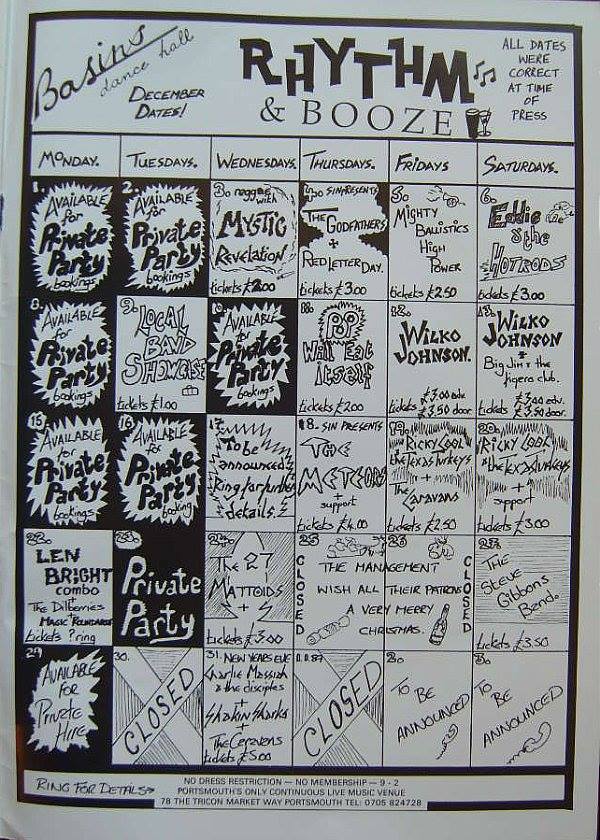 Basins
dance hall
DECEMBER
DATES!
RHYTHM
& BOOZE
ALL DATES
WERE
CORRECT
AT TIME
OF
PRESS
MONDAY.
TUESDAYS.
WEDNESDAYS.
THURSDAYS.
FRIDAYS
SATURDAYS.
1.
AVAILABLE
for
Private
Party
bookings
2.
AVAILABLE
for
Private
Party
bookings
3. reggae
with
MYSTIC
Revelation
tickets £2.00
4. SIN PRESENTS
THE
GODFATHERS
+
RED LETTER DAY.
tickets £3.00
5.
MIGHTY
BALLISTICS
HIGH
POWER
tickets £2.50
6.
Eddie
& the
HOTRODS
tickets £3.00
8.
AVAILABLE
for
Private
Party
bookings
9.
LOCAL
BAND
SHOWCASE
tickets £1.00
10.
AVAILABLE
for
Private
Party
bookings
11.
POP
Will Eat
itself
tickets £2.00
12.
WILKO
JOHNSON.
tickets £3.00 adv.
£3.50 door.
13.
WILKO
JOHNSON
+
Big Jim & the
figero club.
tickets £3.00 adv.
£3.50 door.
15.
AVAILABLE
for
Private
Party
bookings
16.
AVAILABLE
for
Private
Party
booking
17.
To be
announced
Ring for further
details.
18. SIN PRESENTS
THE
METEORS
+
support
tickets £4.00
19.
RICKY COOL
& the TEXAS TURKEYS
+
The Caravans
tickets £2.50
20.
RICKY COOL
& the TEXAS TURKEYS
+
support
tickets £3.00
22.
LEN
BRIGHT
combo
+
The Dilberries
+
MAGIC ROUNDABOUT
tickets ?ring
23.
Private
Party
24.
The 27
MATTOIDS
+ S
tickets £3.00
25
26
CLOSED
THE MANAGEMENT
WISH ALL THEIR PATRONS
A VERY MERRY
CHRISTMAS.
CLOSED
27.
THE
Steve
Gibbons
Band.
tickets £3.50
29
AVAILABLE
FOR
Private
HIRE
30.
CLOSED
31. NEW YEARS EVE
Charlie Messiah
& the disciples
+
Shakin Sharks
+
The Caravans
tickets £5.00
1.1.87
CLOSED
2.
TO BE
ANNOUNCED
3.
TO BE
ANNOUNCED
RING FOR DETAILS
NO DRESS RESTRICTION — NO MEMBERSHIP — 9 - 2
PORTSMOUTH'S ONLY CONTINUOUS LIVE MUSIC VENUE
78 THE TRICON MARKET WAY PORTSMOUTH TEL: 0705 824728